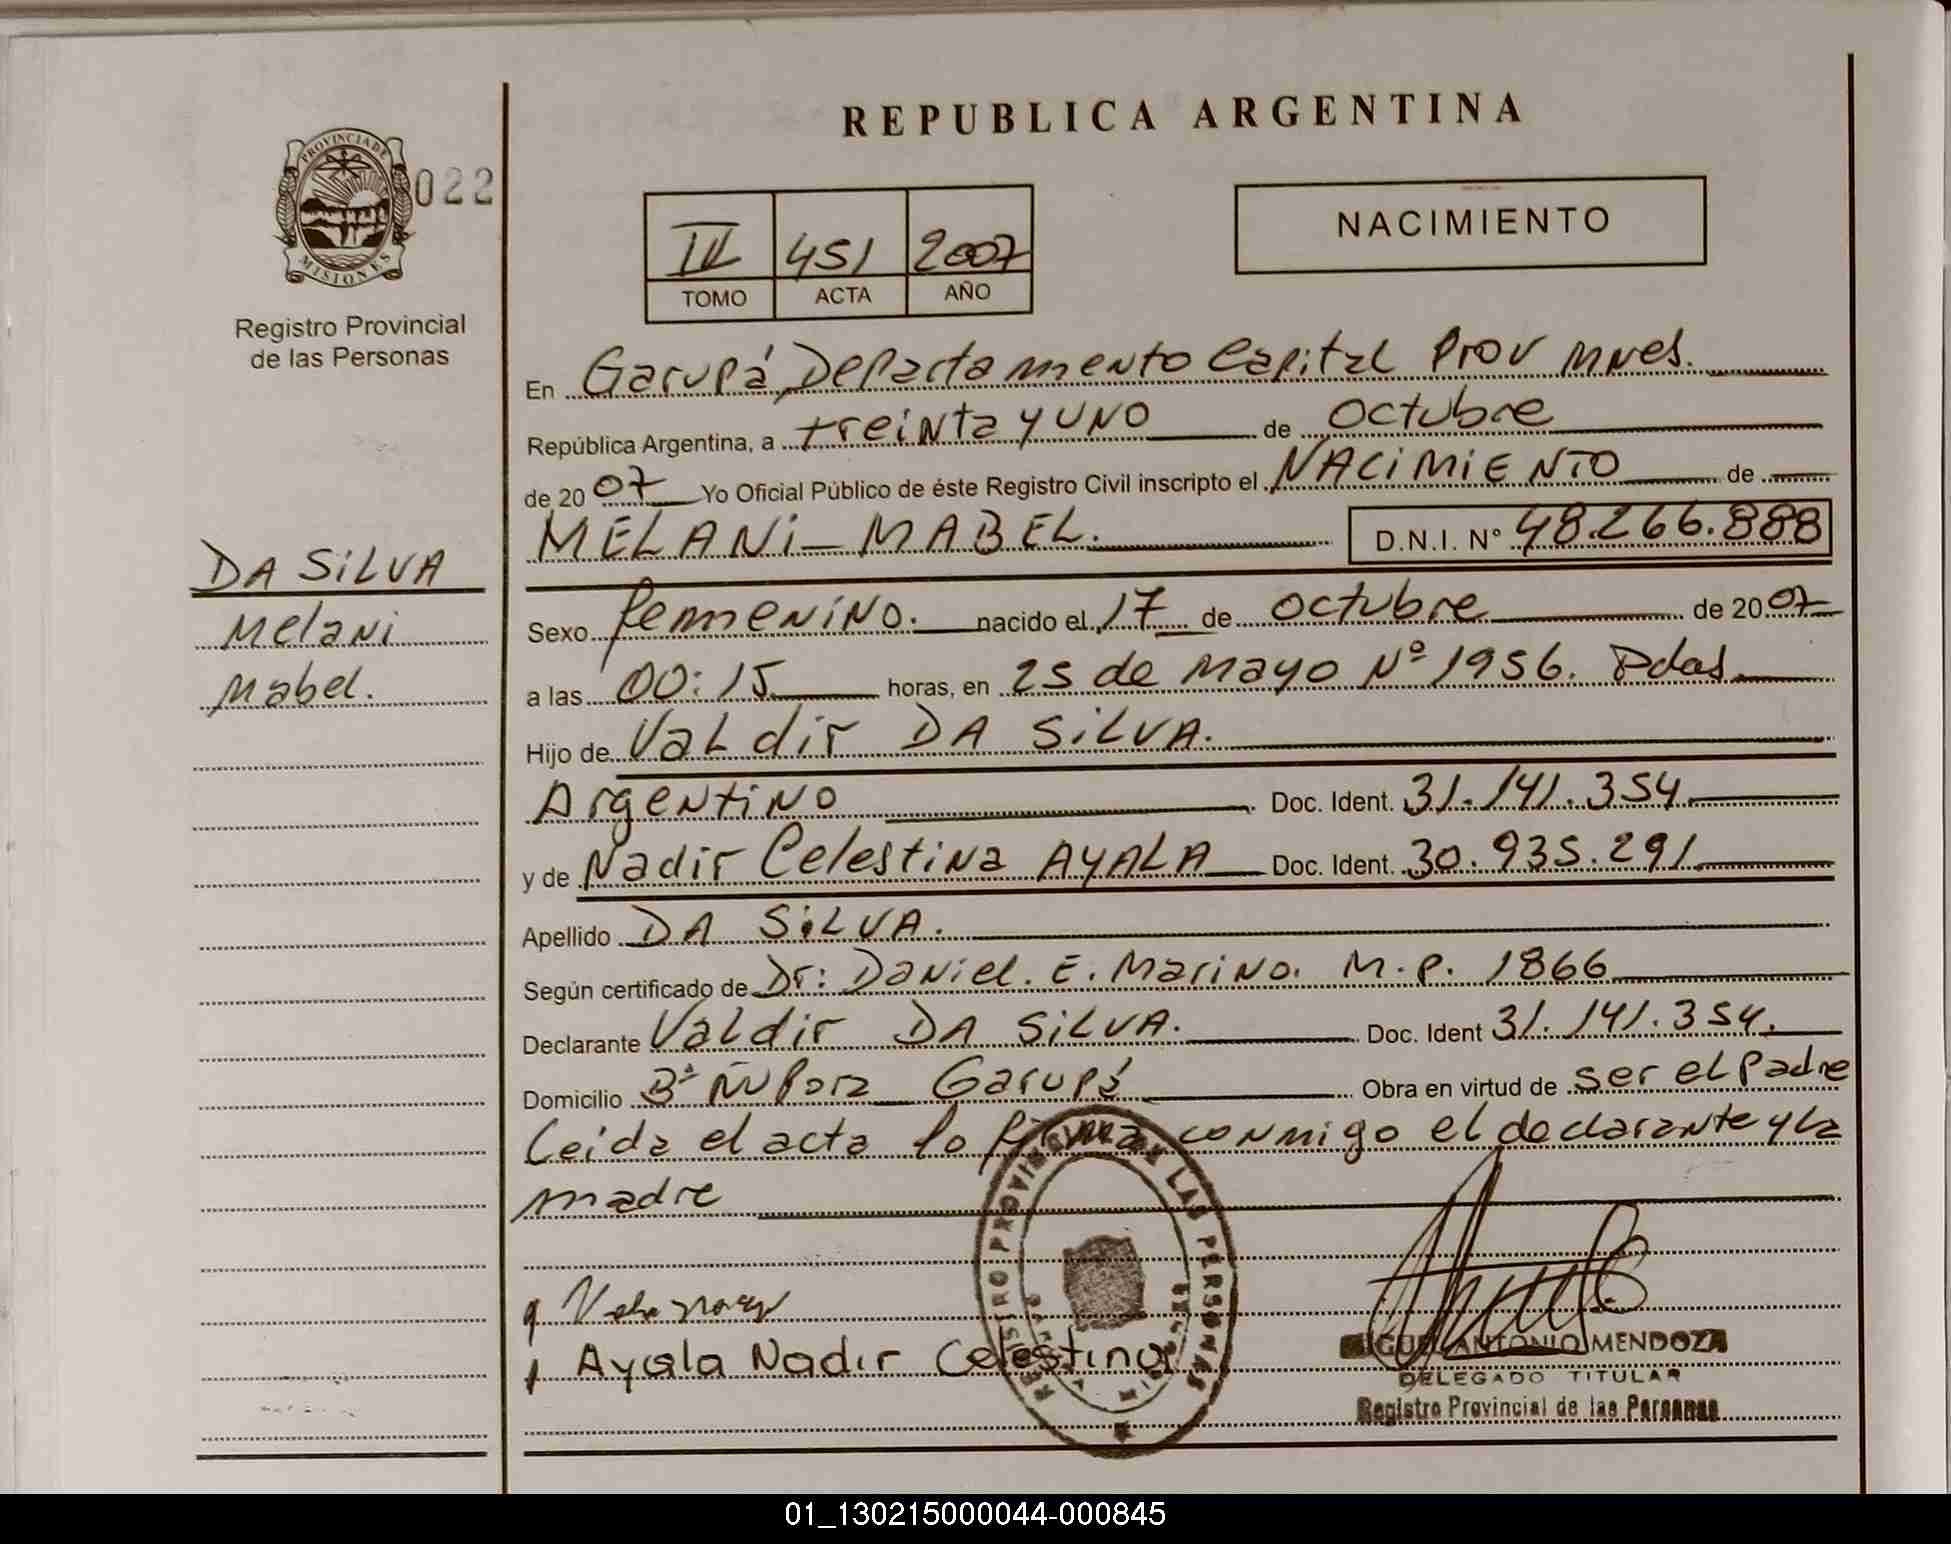 REPUBLICA ARGENTINA
PROVINCIA DE
MISIONES
022
Registro Provincial
de las Personas
451 2007
TOMO ACTA AÑO
NACIMIENTO
En Garupá, Departamento Capital Prov Mnes.
República Argentina, a treinta y uno de octubre
de 2007 Yo Oficial Público de éste Registro Civil inscripto el NACIMIENTO de
MELANI MABEL. D.N.I. N° 48.266.888
DA SILVA
Melani
Mabel.
Sexo femenino. nacido el 17 de octubre de 2007
a las 00:15 horas, en 25 de Mayo Nº 1956. Pdas
Hijo de Valdir DA SILVA.
Argentino Doc. Ident. 31.141.354
y de Nadir Celestina AYALA Doc. Ident. 30.935.291
Apellido DA SILVA.
Según certificado de Dr: Daniel. E. Marino. M.P. 1866
Declarante Valdir DA SILVA. Doc. Ident 31.141.354.
Domicilio Bº Ñu Pora Garupá Obra en virtud de ser el padre
Leida el acta lo firma conmigo el declarante y la
madre
Ayala Nadir Celestina
REGISTRO PROVINCIAL DE LAS PERSONAS
MIGUEL ANTONIO MENDOZA
DELEGADO TITULAR
Registro Provincial de las Personas
01_130215000044-000845